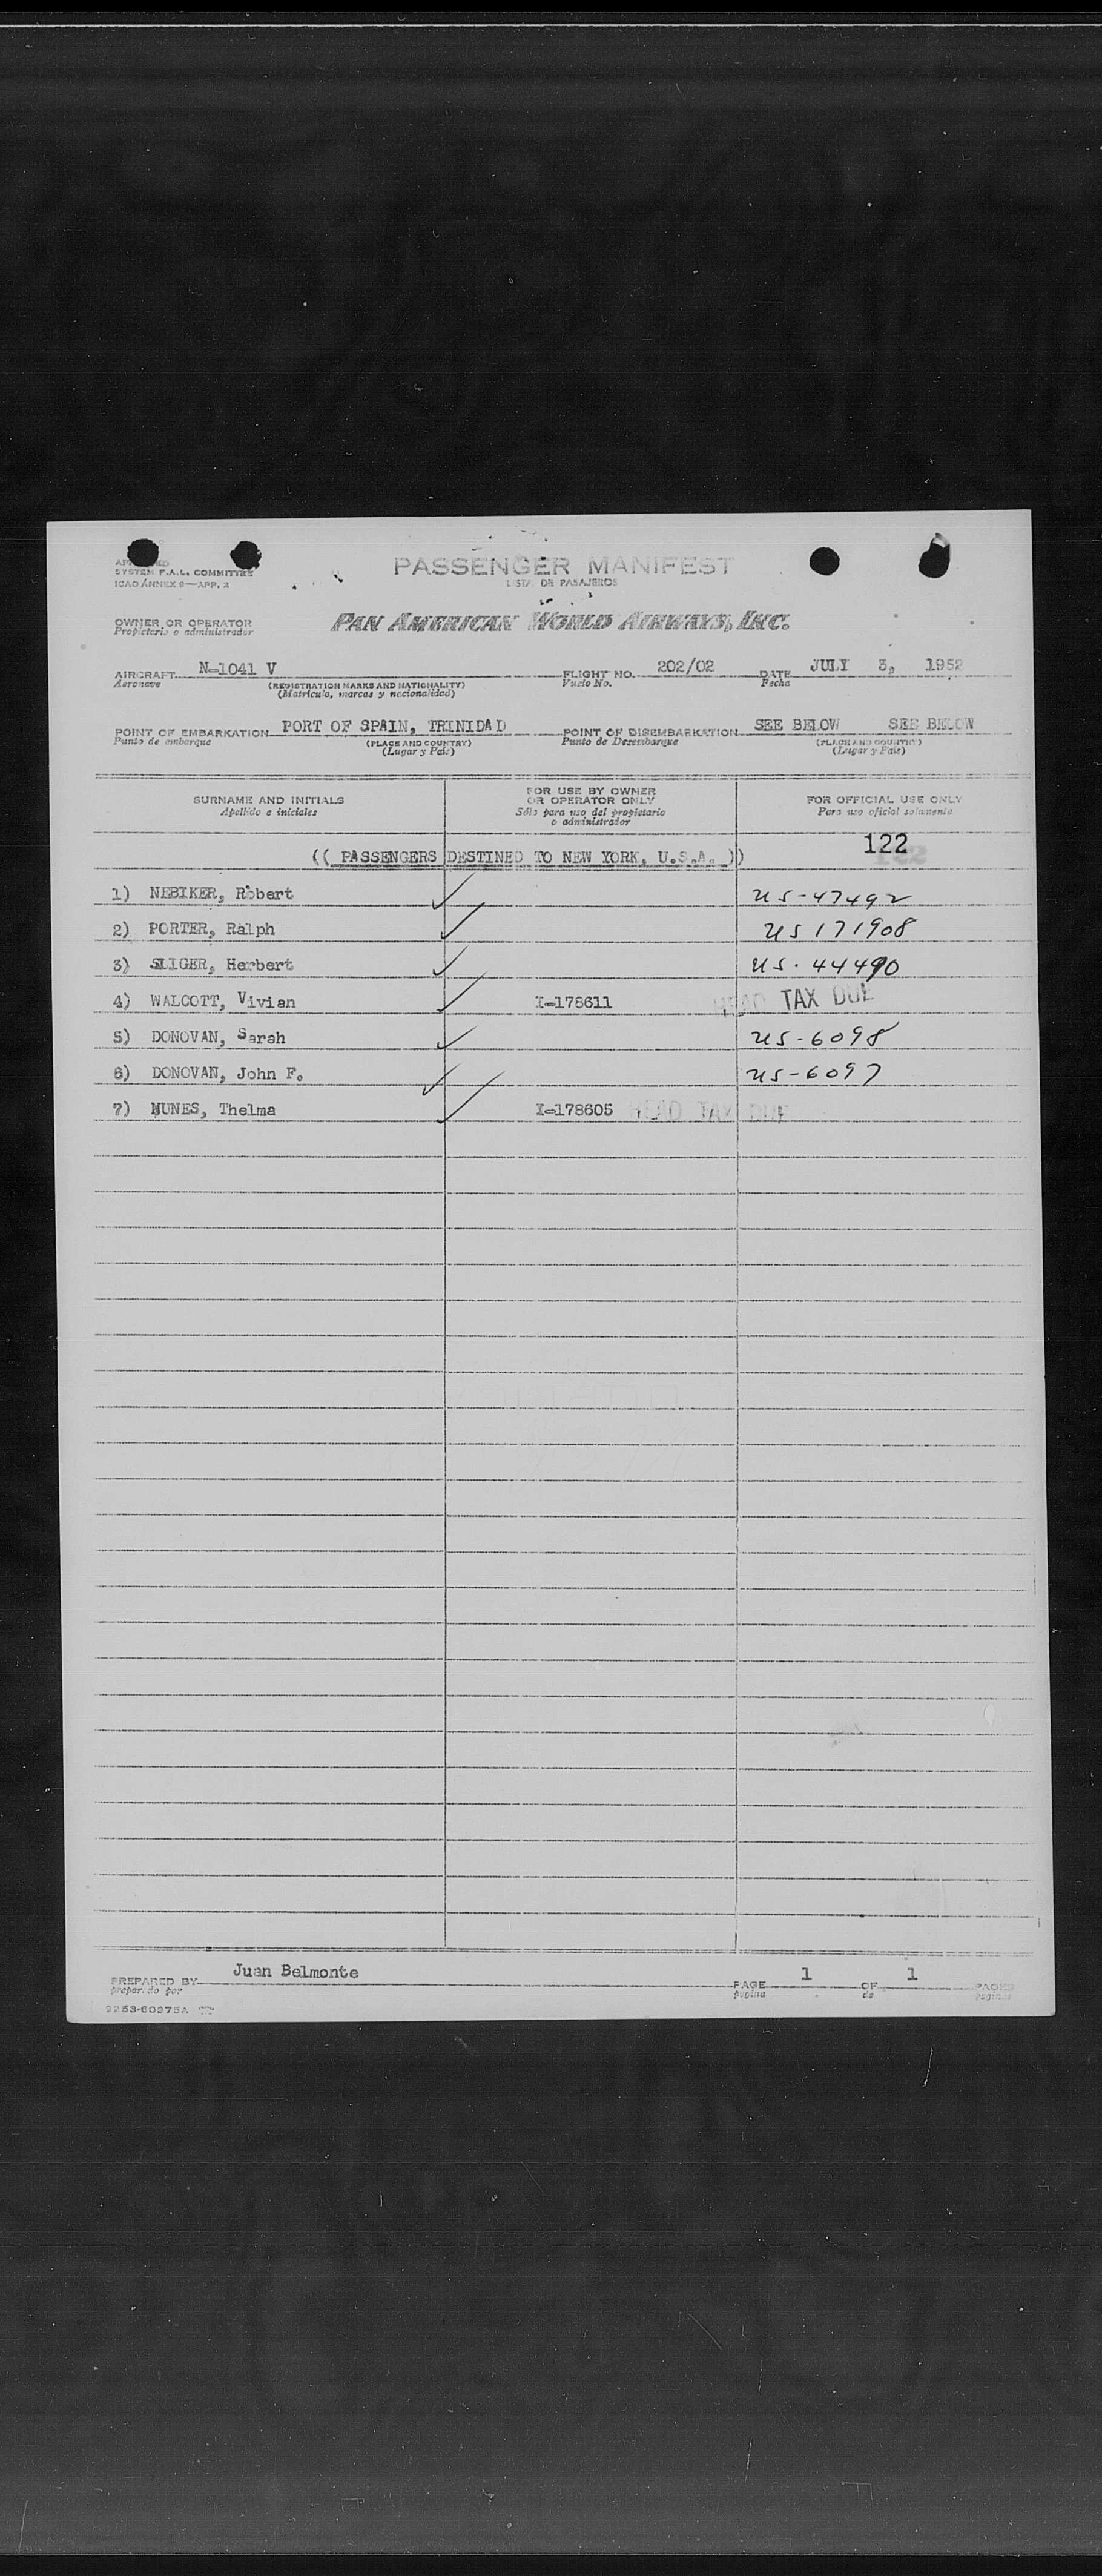 APPROVED
SYSTEM F.A.L. COMMITTEE
ICAO ANNEX 9—APP. 3
PASSENGER MANIFEST
LISTA DE PASAJEROS
OWNER OR OPERATOR
Propietario o administrador
PAN AMERICAN WORLD AIRWAYS, INC.
AIRCRAFT N-1041 V FLIGHT NO. 202/02 DATE JULY 3, 1952
Aeronave (REGISTRATION MARKS AND NATIONALITY) Vuelo No. Fecha
(Matrícula, marcas y nacionalidad)
POINT OF EMBARKATION PORT OF SPAIN, TRINIDAD POINT OF DISEMBARKATION SEE BELOW SEE BELOW
Punto de embarque (PLACE AND COUNTRY) Punto de Desembarque (PLACE AND COUNTRY)
(Lugar y País) (Lugar y País)
SURNAME AND INITIALS FOR USE BY OWNER OR OPERATOR ONLY FOR OFFICIAL USE ONLY
Apellido e iniciales Sólo para uso del propietario o administrador Para uso oficial solamente
122
(( PASSENGERS DESTINED TO NEW YORK, U.S.A. ))
1) NEBIKER, Robert US-47492
2) PORTER, Ralph US 171908
3) SLIGER, Herbert US. 44490
4) WALCOTT, Vivian I-178611 HEAD TAX DUE
5) DONOVAN, Sarah US-6098
6) DONOVAN, John F. US-6097
7) NUNES, Thelma I-178605 HEAD TAX DUE
PREPARED BY Juan Belmonte PAGE 1 OF 1 PAGES
preparado por página de páginas